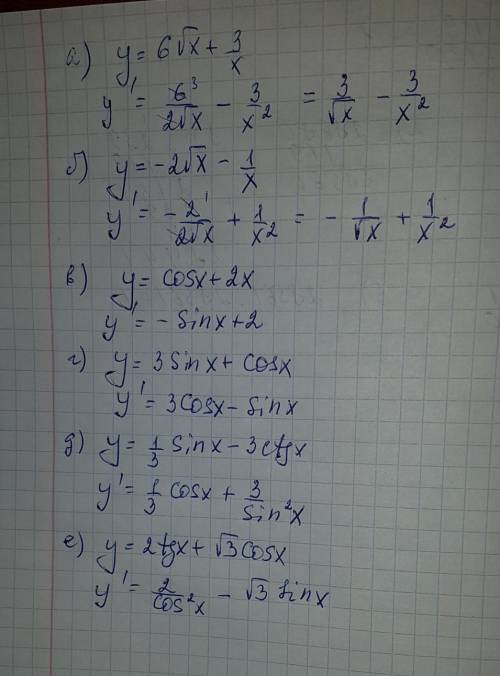 а) y = 6√x + 3/x
y' = 6³/2√x − 3/x² = 3/√x − 3/x²
б) y = −2√x − 1/x
y' = −2¹/2√x + 1/x² = − 1/√x + 1/x²
в) y = cosx + 2x
y' = − sinx + 2
г) y = 3 sinx + cosx
y' = 3 cosx − sinx
д) y = 1/3 sinx − 3 ctgx
y' = 1/3 cosx + 3/sin²x
е) y = 2tgx + √3 cosx
y' = 2/cos²x − √3 sinx